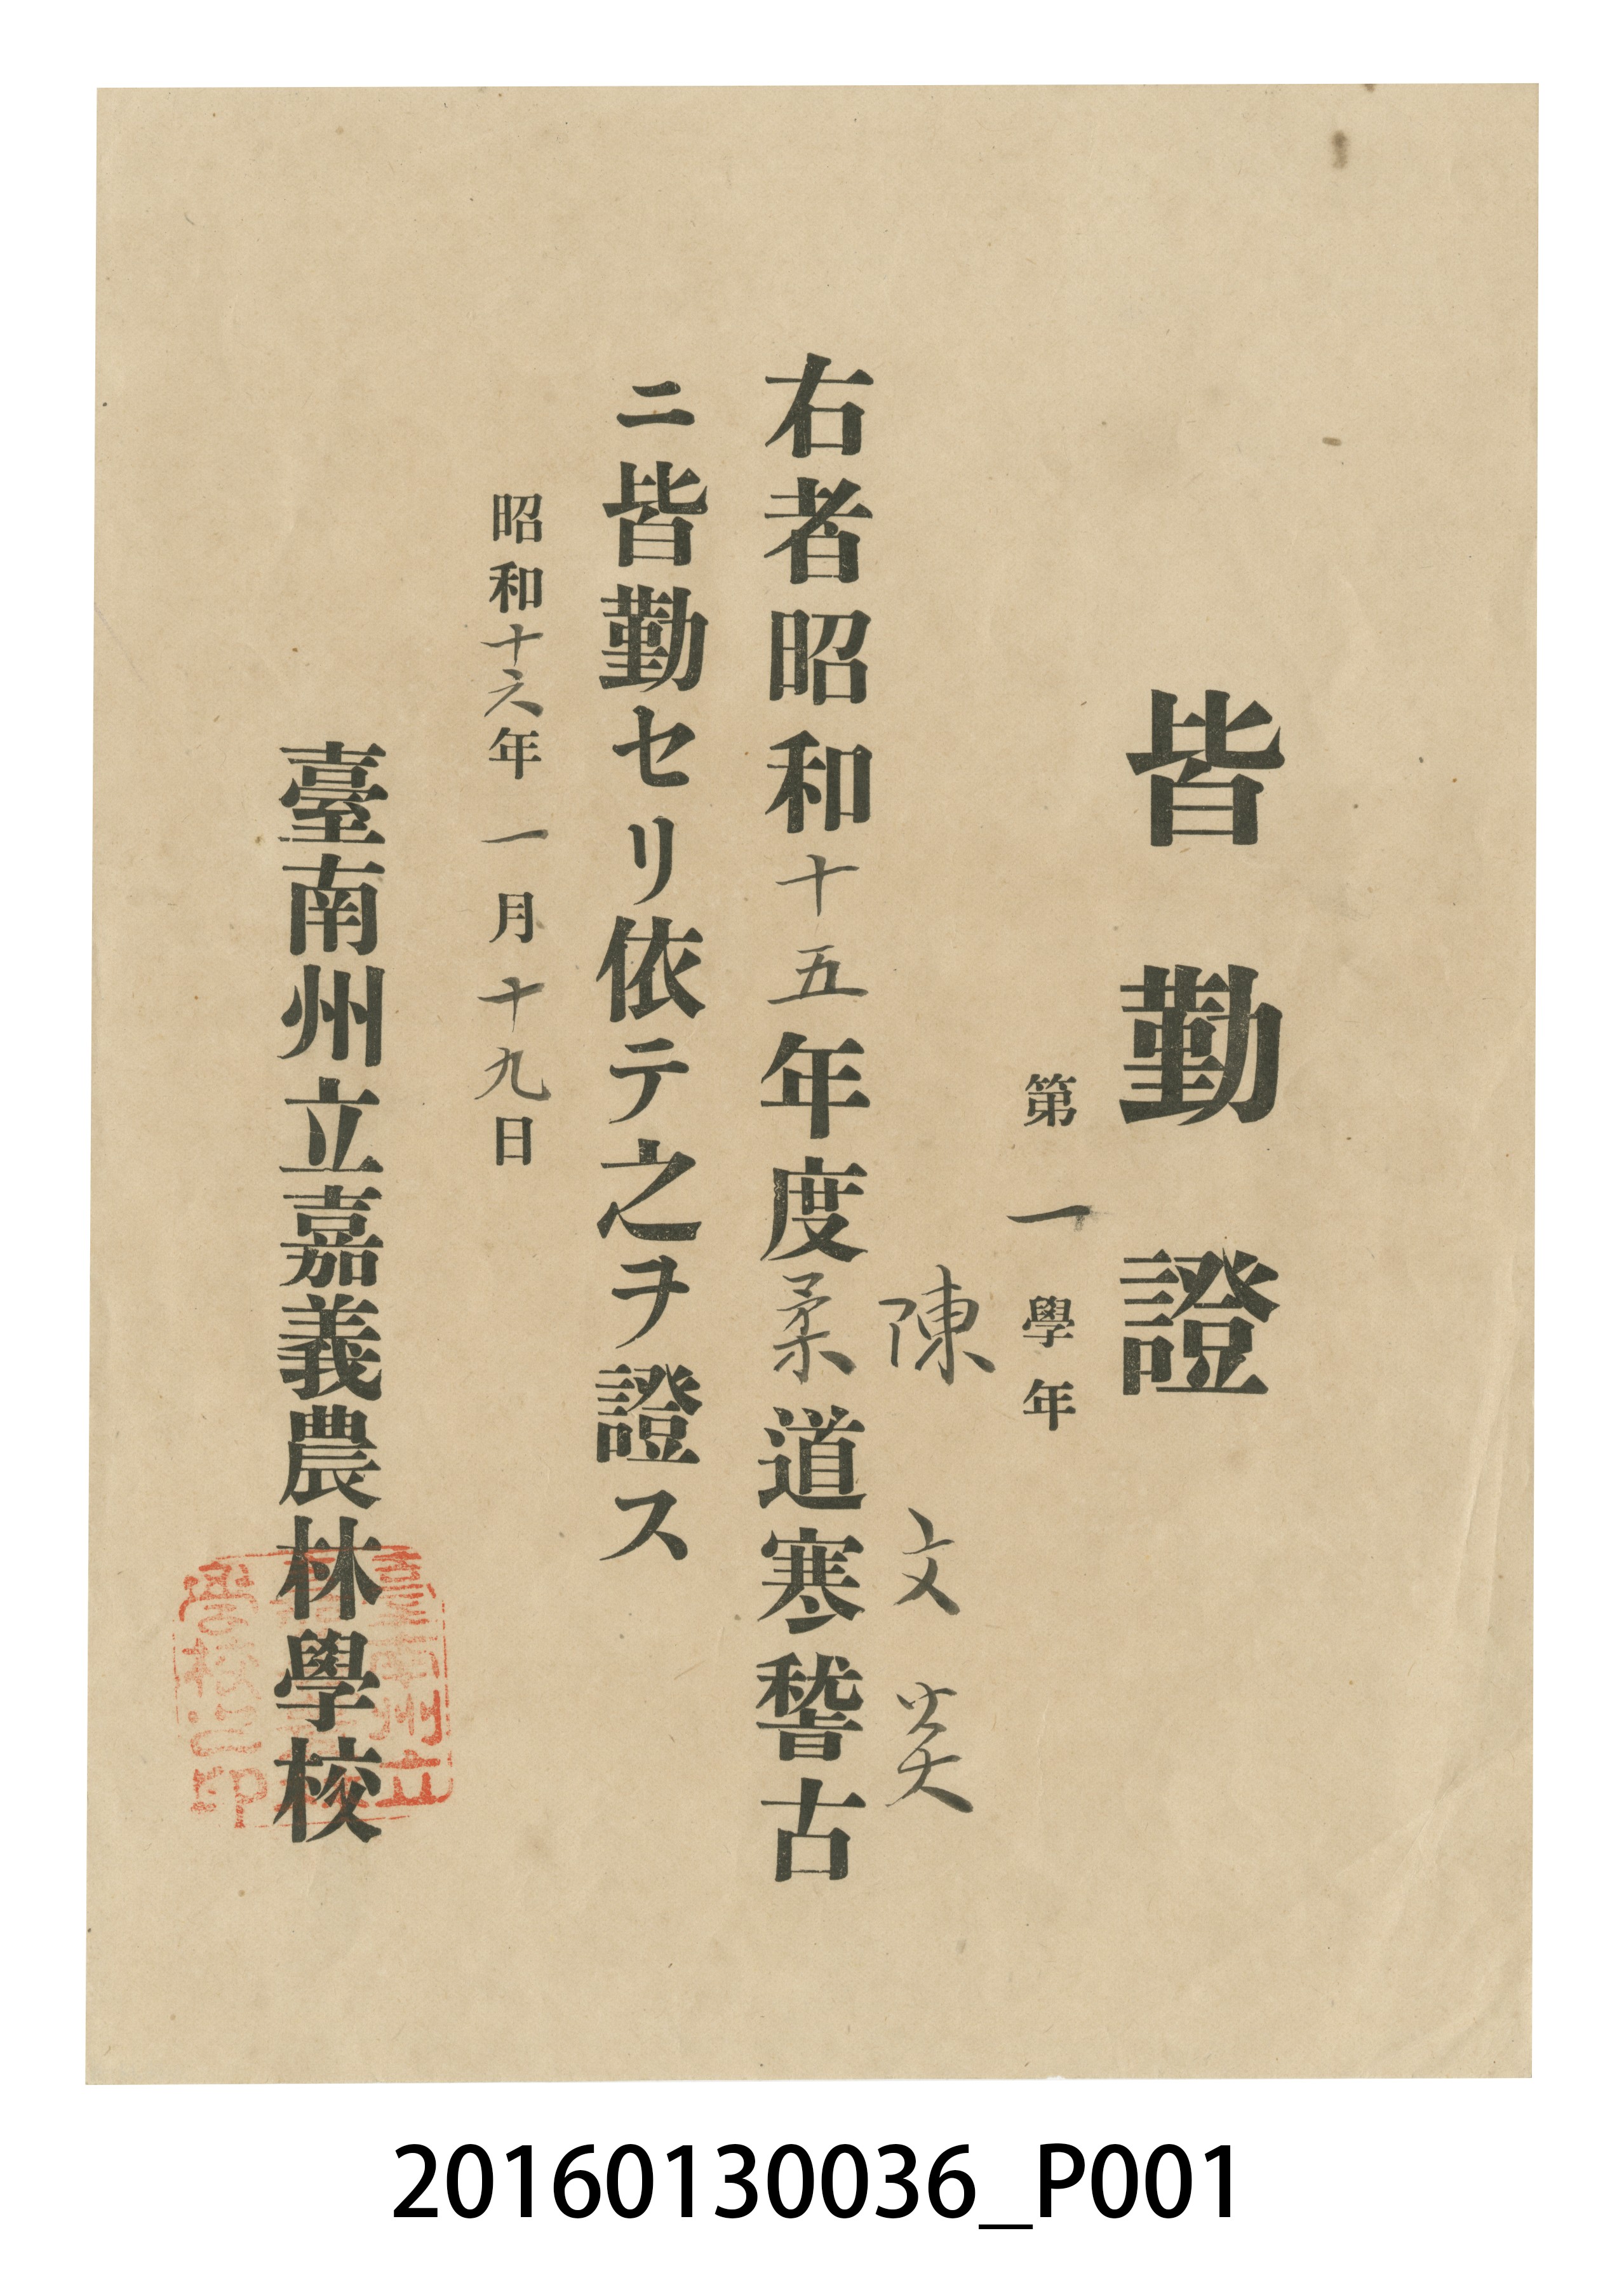 皆勤證
第一學年
陳文英
右者昭和十五年度柔道寒稽古
ニ皆勤セリ依テ之ヲ證ス
昭和十六年一月十九日
臺南州立嘉義農林學校
臺南州立
學校之印
20160130036_P001